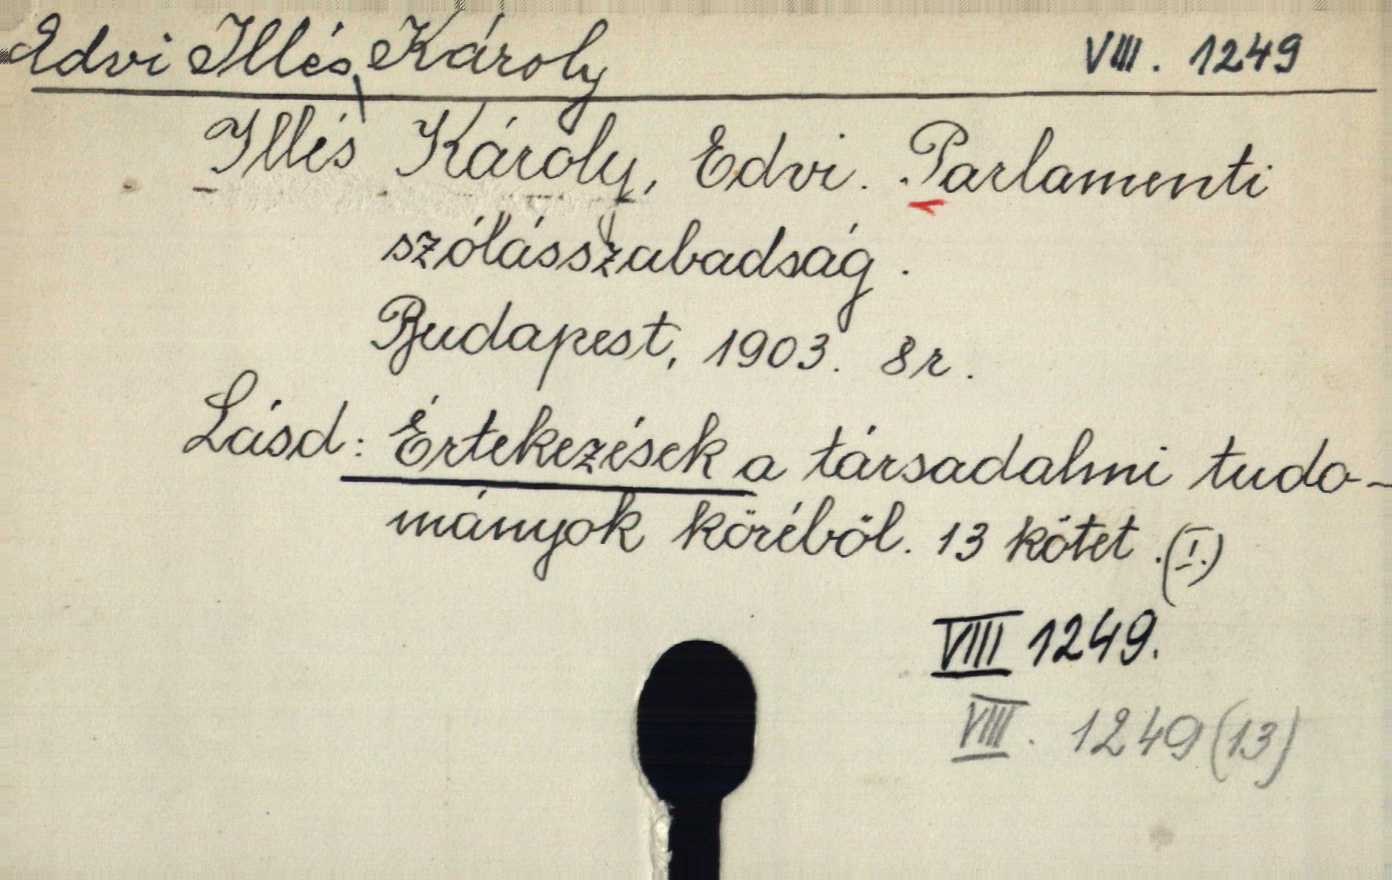 Edvi Illés, Károly VIII. 1249
Illés Károly, Edvi. Parlamenti
szólásszabadság.
Budapest, 1903. 8r.
Lásd: Értekezések a társadalmi tudo-
mányok köréből. 13 kötet. (I.)
VIII 1249.
VIII. 1249 (13)